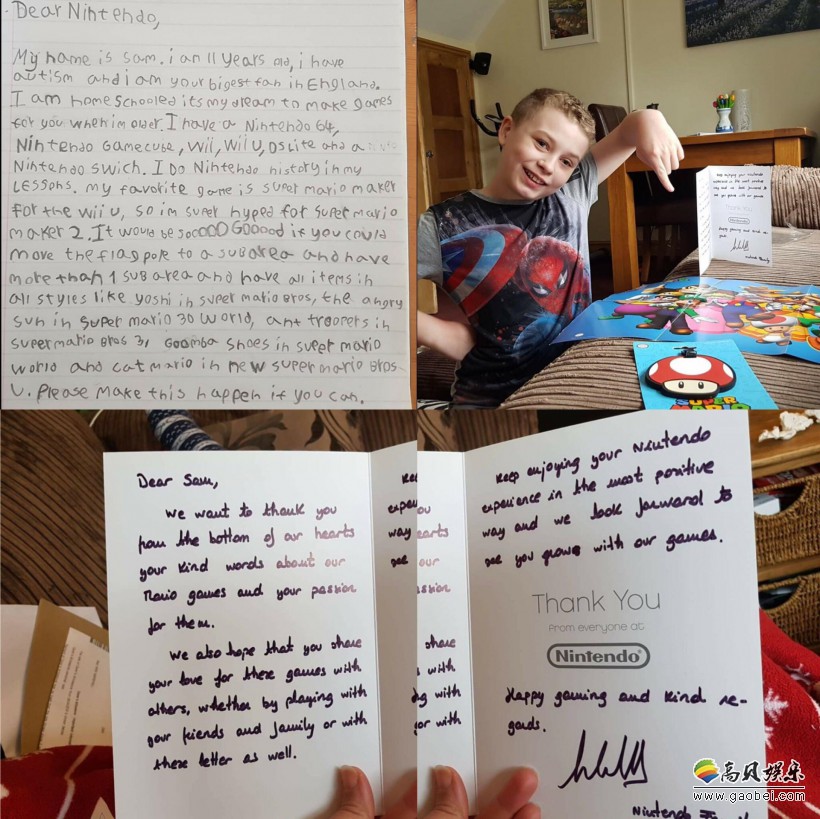 Dear Nintendo,
My name is sam. i an 11 years old, i have
autism and i am your bigest fan in England.
I am homeschooled its my dream to make games
for you when im older. I have a Nintendo 64,
Nintendo Gamecube, Wii, Wii U, DS lite and a
Nintendo swich. I Do Nintendo history in my
Lessons. my favorite game is super mario maker
for the wii u, so im super hyped for super mario
maker 2. It would be sooooo Gooood if you could
move the flag pole to a sub area and have
more than 1 sub area and have all items in
all styles like yoshi in super mario Bros, the angry
sun in super mario 3D World, ant troopers in
super mario Bros 3, Goomba shoes in super mario
world and cat mario in new super mario Bros
U. Please make this happen if you can.
Keep enjoying your Nintendo
experience in the most positive
way and we look forward to
see you grow with our games.
Thank You
Nintendo
Happy gaming and kind re-
gards.
SUPER
Dear Sam,
We want to thank you
from the bottom of our hearts
your kind words about our
Mario games and your passion
for them.
We also hope that you share
your love for these games with
others, whether by playing with
your friends and family or with
these letter as well.
Keep enjoying your Nintendo
experience in the most positive
way and we look forward to
see you grow with our games.
Thank You
From everyone at
Nintendo
Happy gaming and kind re-
gards.
Nintendo
高贝娱乐
www.gaobei.com